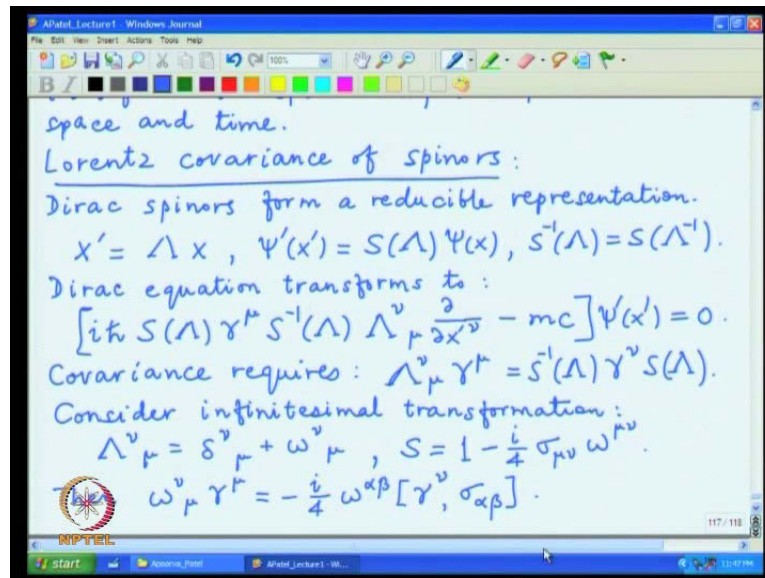 APatel_Lecture1 - Windows Journal
File Edit View Insert Actions Tools Help
100%
B I
space and time.
Lorentz covariance of spinors:
Dirac spinors form a reducible representation.
x' = Λ x , ψ'(x') = S(Λ) ψ(x), S⁻¹(Λ) = S(Λ⁻¹).
Dirac equation transforms to :
[iħ S(Λ) γ^μ S⁻¹(Λ) Λ^ν_μ ∂/∂x'^ν - mc] ψ'(x') = 0.
Covariance requires: Λ^ν_μ γ^μ = S⁻¹(Λ) γ^ν S(Λ).
Consider infinitesimal transformation :
Λ^ν_μ = δ^ν_μ + ω^ν_μ , S = 1 - i/4 σ_μν ω^μν.
ω^ν_μ γ^μ = - i/4 ω^αβ [γ^ν, σ_αβ].
NPTEL
117 / 118
start Apoorva_Patel APatel_Lecture1 - Wi... 11:47 PM